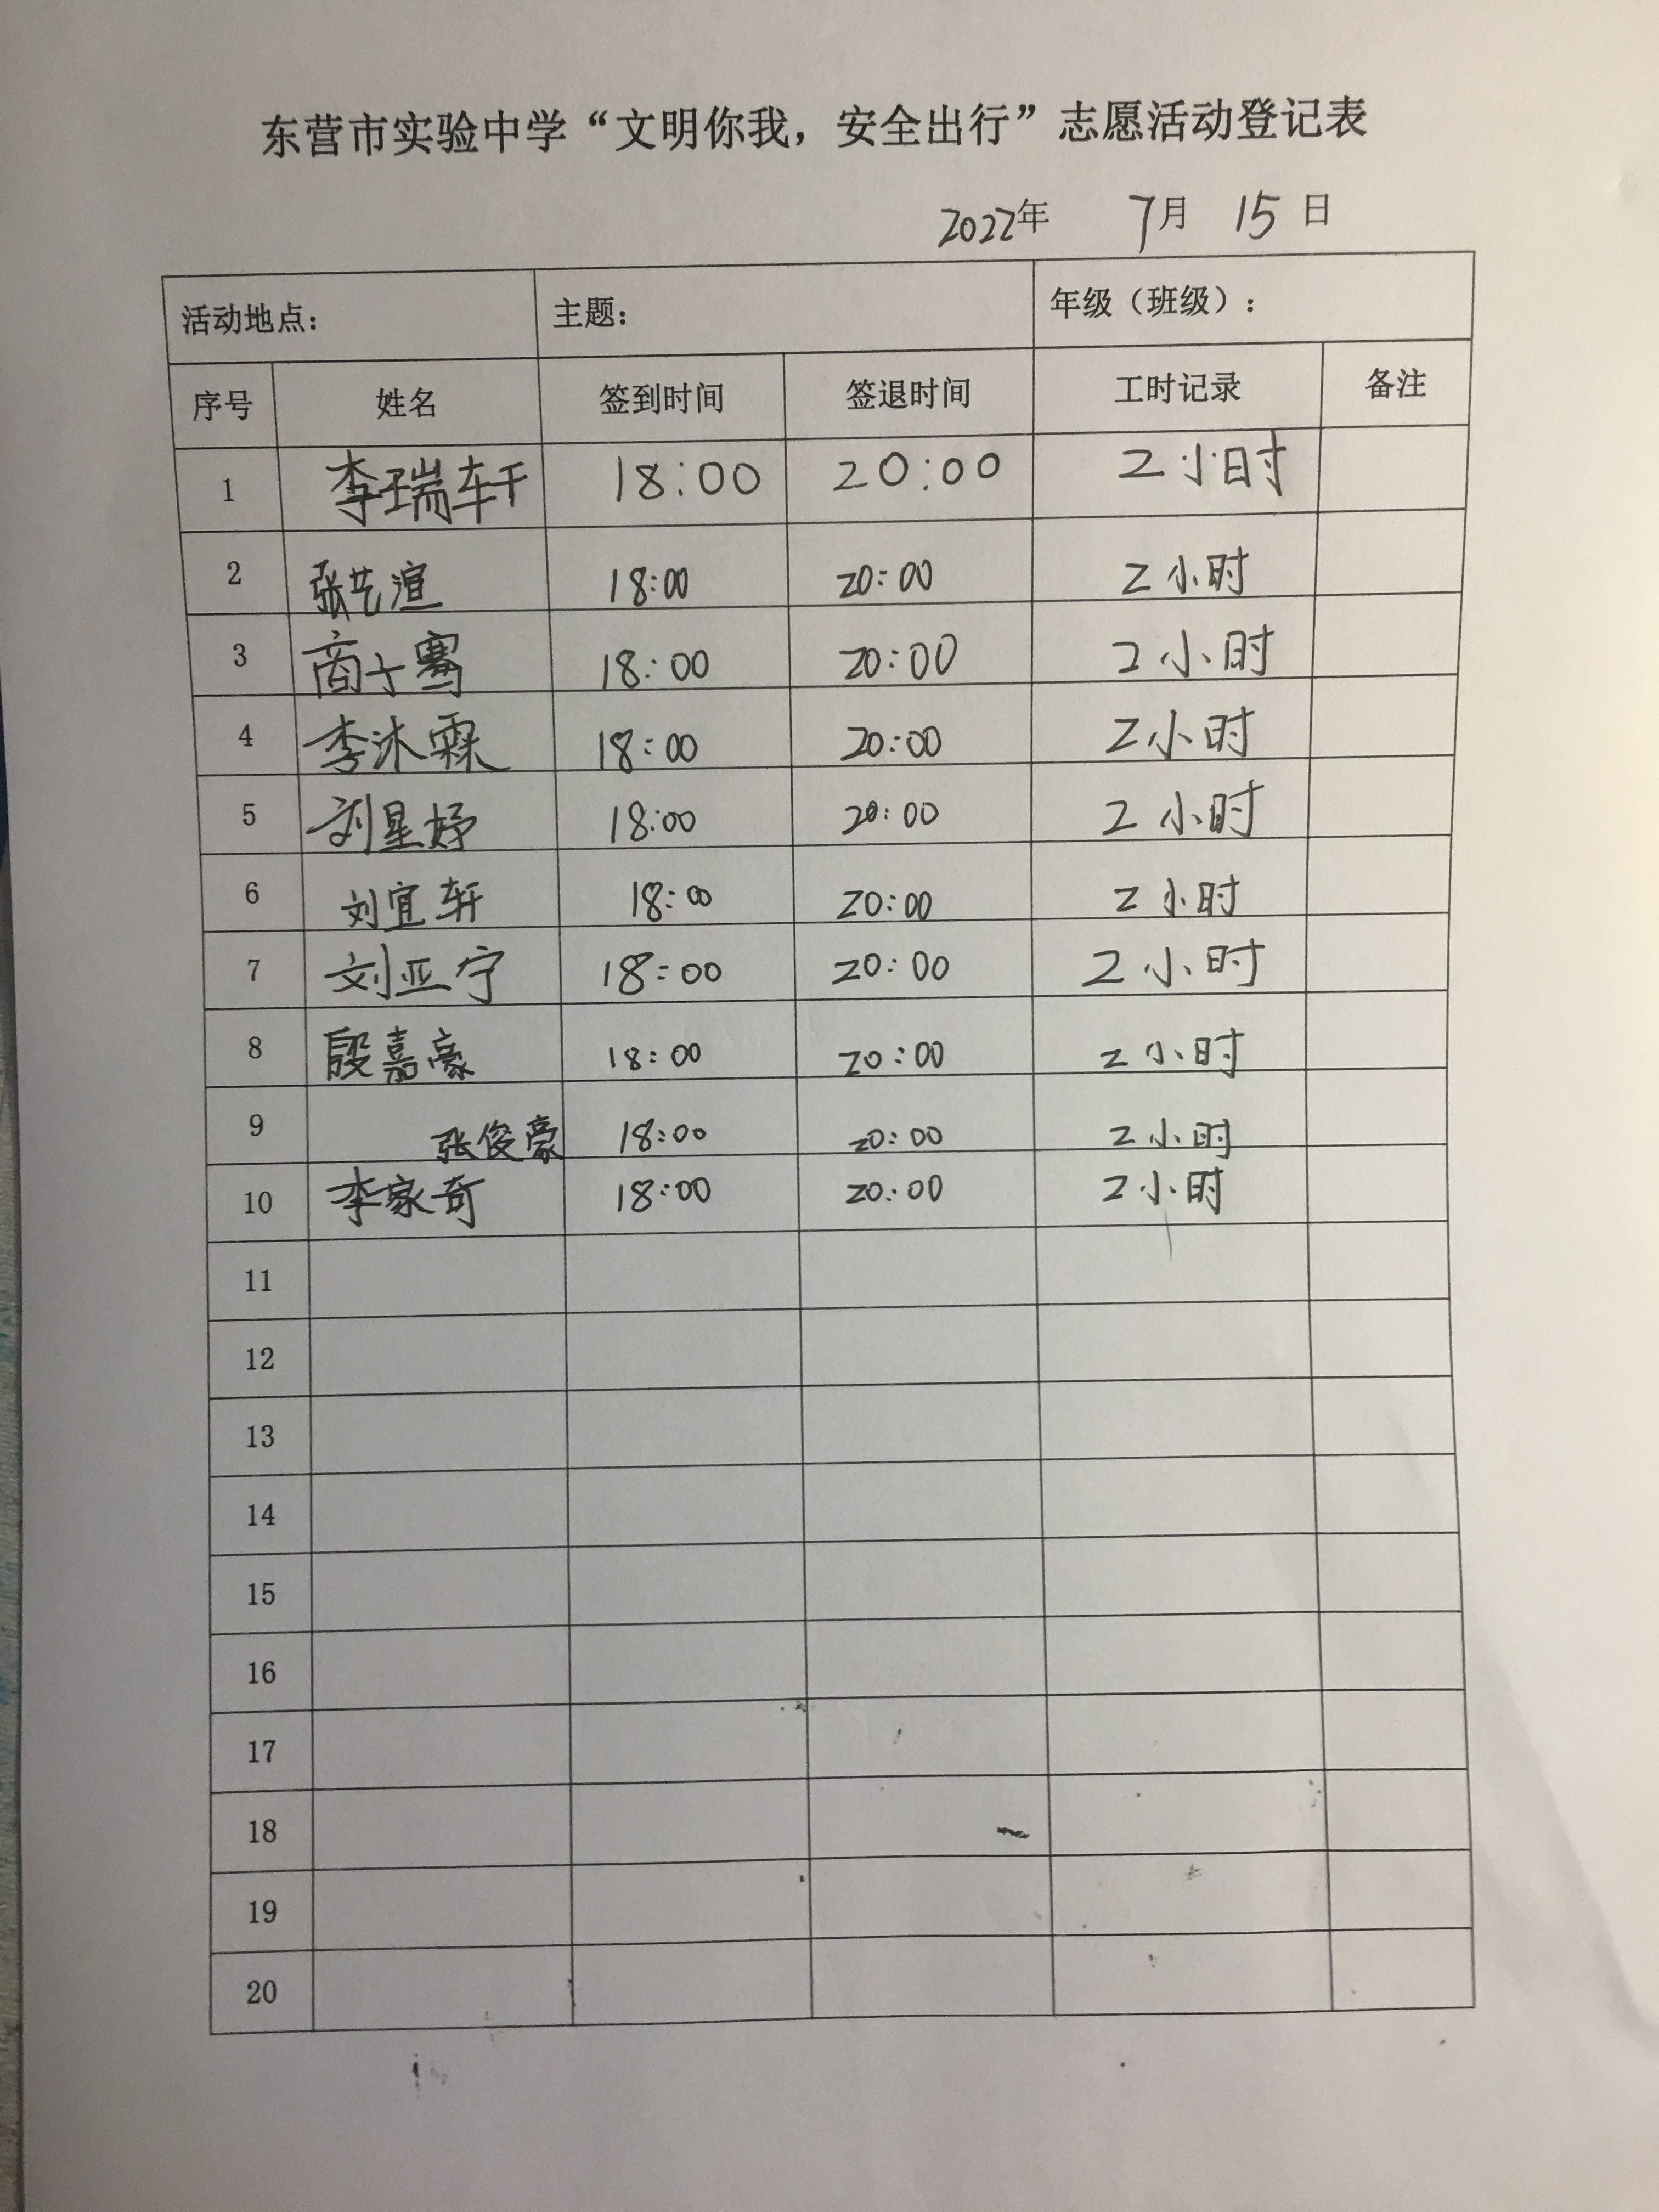 东营市实验中学“文明你我，安全出行”志愿活动登记表
2022年 7月 15日
活动地点： 主题： 年级（班级）：
序号 姓名 签到时间 签退时间 工时记录 备注
1 李瑞轩 18:00 20:00 2小时
2 张艺渲 18:00 20:00 2小时
3 商 18:00 20:00 2小时
4 李沐霖 18:00 20:00 2小时
5 刘星妤 18:00 20:00 2小时
6 刘宜轩 18:00 20:00 2小时
7 刘亚宁 18:00 20:00 2小时
8 殷嘉豪 18:00 20:00 2小时
9 张俊豪 18:00 20:00 2小时
10 李家奇 18:00 20:00 2小时
11
12
13
14
15
16
17
18
19
20